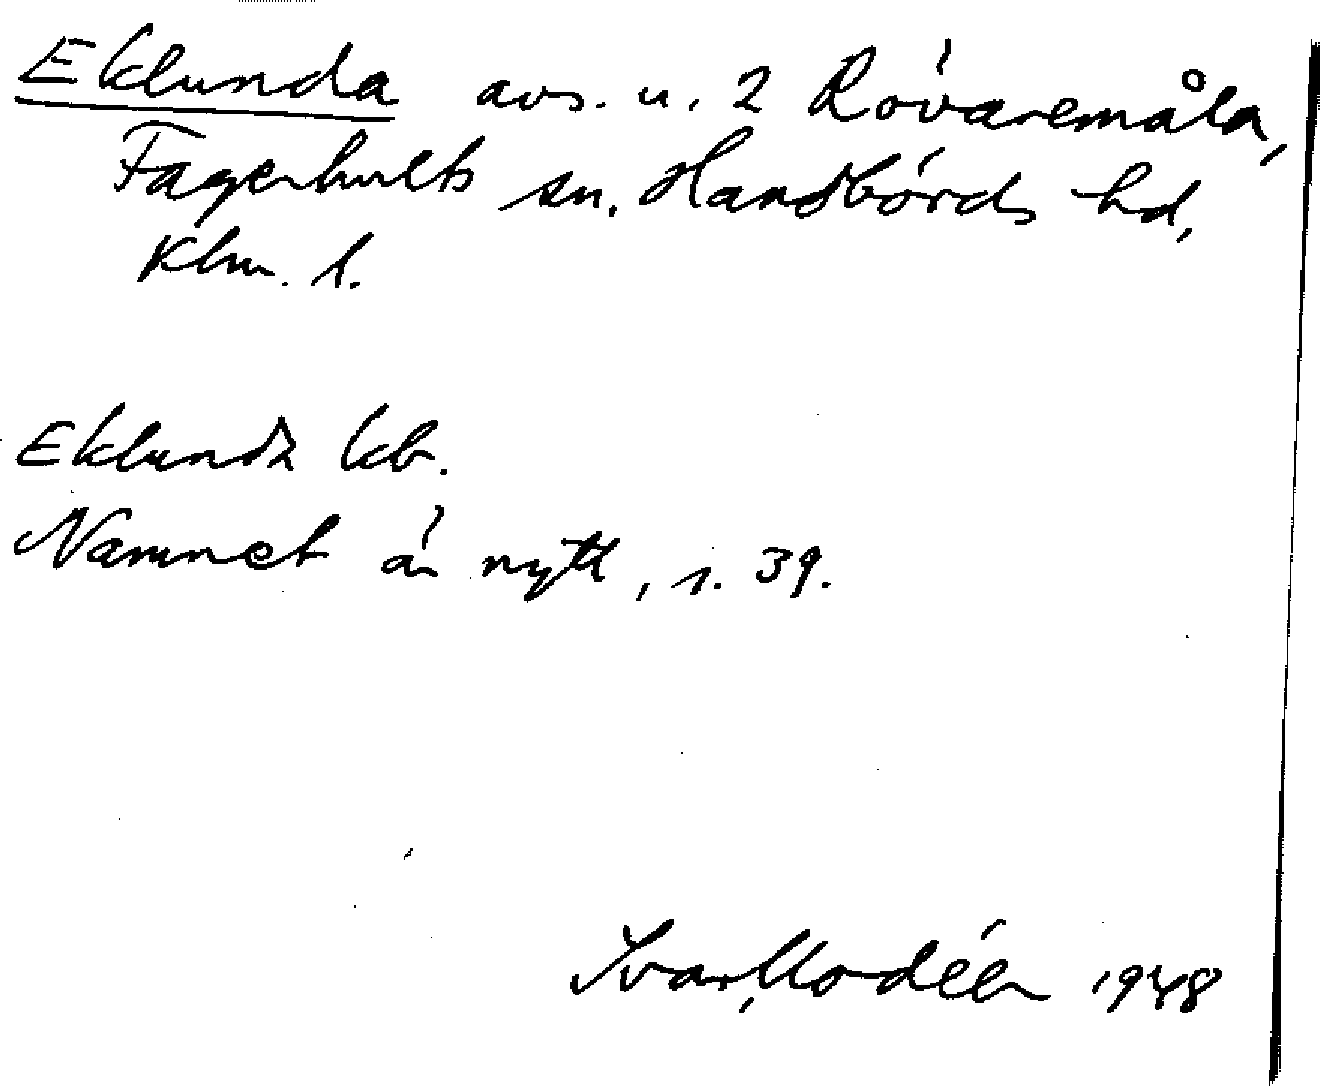 Eklunda avs. u. 2 Rövaremåla,
Fagerhults sn. Handbörds hd,
Klm. l.
Eklunda kb.
Namnet är nytt, s. 39.
Ivar Modéer 1948